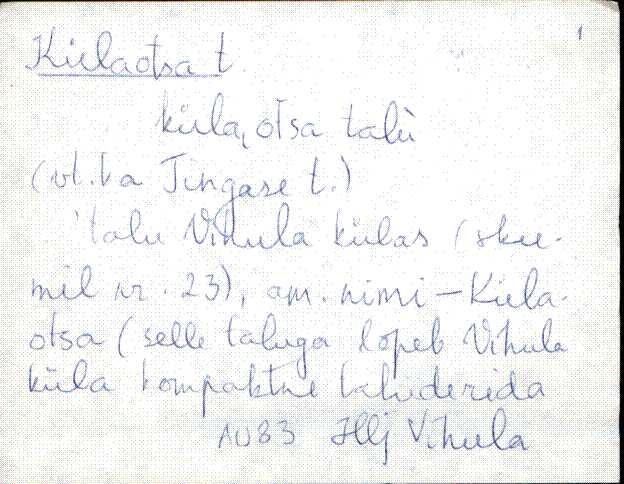 1
Külaotsa t.
küla, otsa talù
(vt. ka Tingase t.)
'talu Vihula külas (skee-
mil nr. 23), am. nimi - Küla-
otsa (selle taluga lõpeb Vihula
küla kompaktne taluderida
AU83 Hlj Vihula